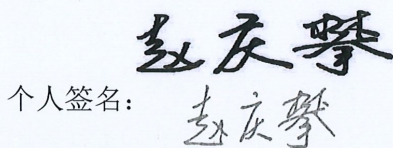 赵庆攀
个人签名：
赵庆攀